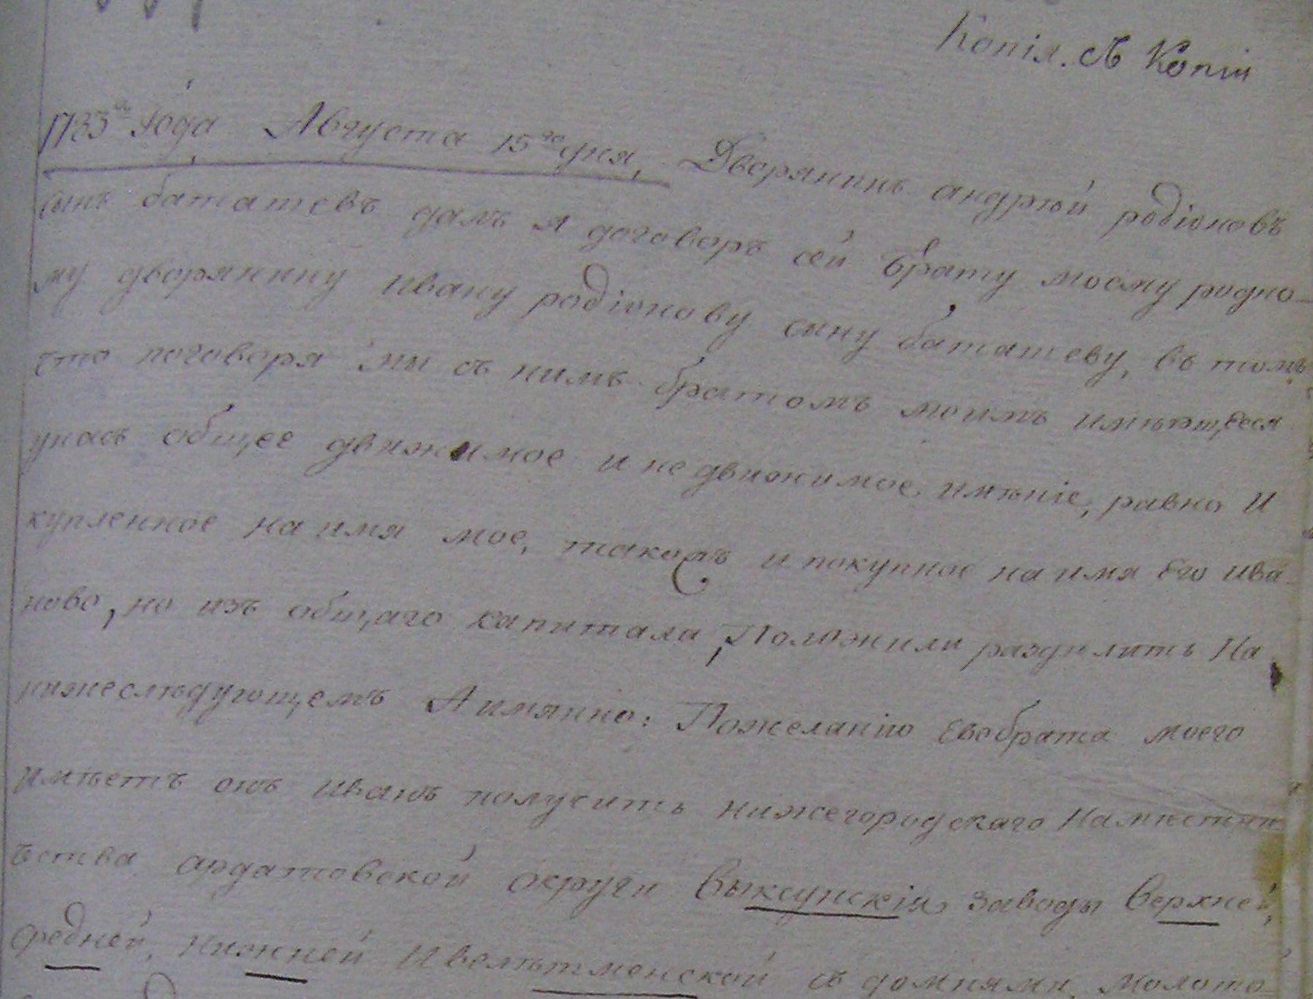 Копія. съ Копіи
1783го Года Августа 15го дня, Дворянинъ андрѣй родіоновъ
сынъ баташевъ далъ я договоръ сей Брату моему родно-
му дворянину ивану родіонову сыну баташеву, въ томъ
что поговоря мы съ нимъ братомъ моимъ имѣющееся
унасъ общее движимое и не движимое имѣніе, равно и
купленное на имя мое, также и покупное на имя Его ива-
ново, но изъ общаго капитала, Положили раздѣлить на
нижеслѣдующемъ А имянно: Пожеланію Ево брата моего
имѣетъ онъ иванъ получить нижегородскаго Намѣстни
чества ардатовской округи Выксунскія заводы Верхней,
Средней, нижней Ивелѣтменской съ домнями, молото